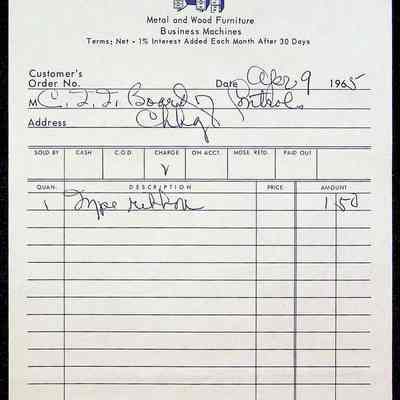 Metal and Wood Furniture
Business Machines
Terms; Net - 1% Interest Added Each Month After 30 Days
Customer's
Order No. Date Apr 9 1965
M C. I. I. Board of
Address
SOLD BY CASH C.O.D. CHARGE ON ACCT. MDSE. RETD. PAID OUT
√
QUAN. DESCRIPTION PRICE AMOUNT
1 Type ribbon 1 50